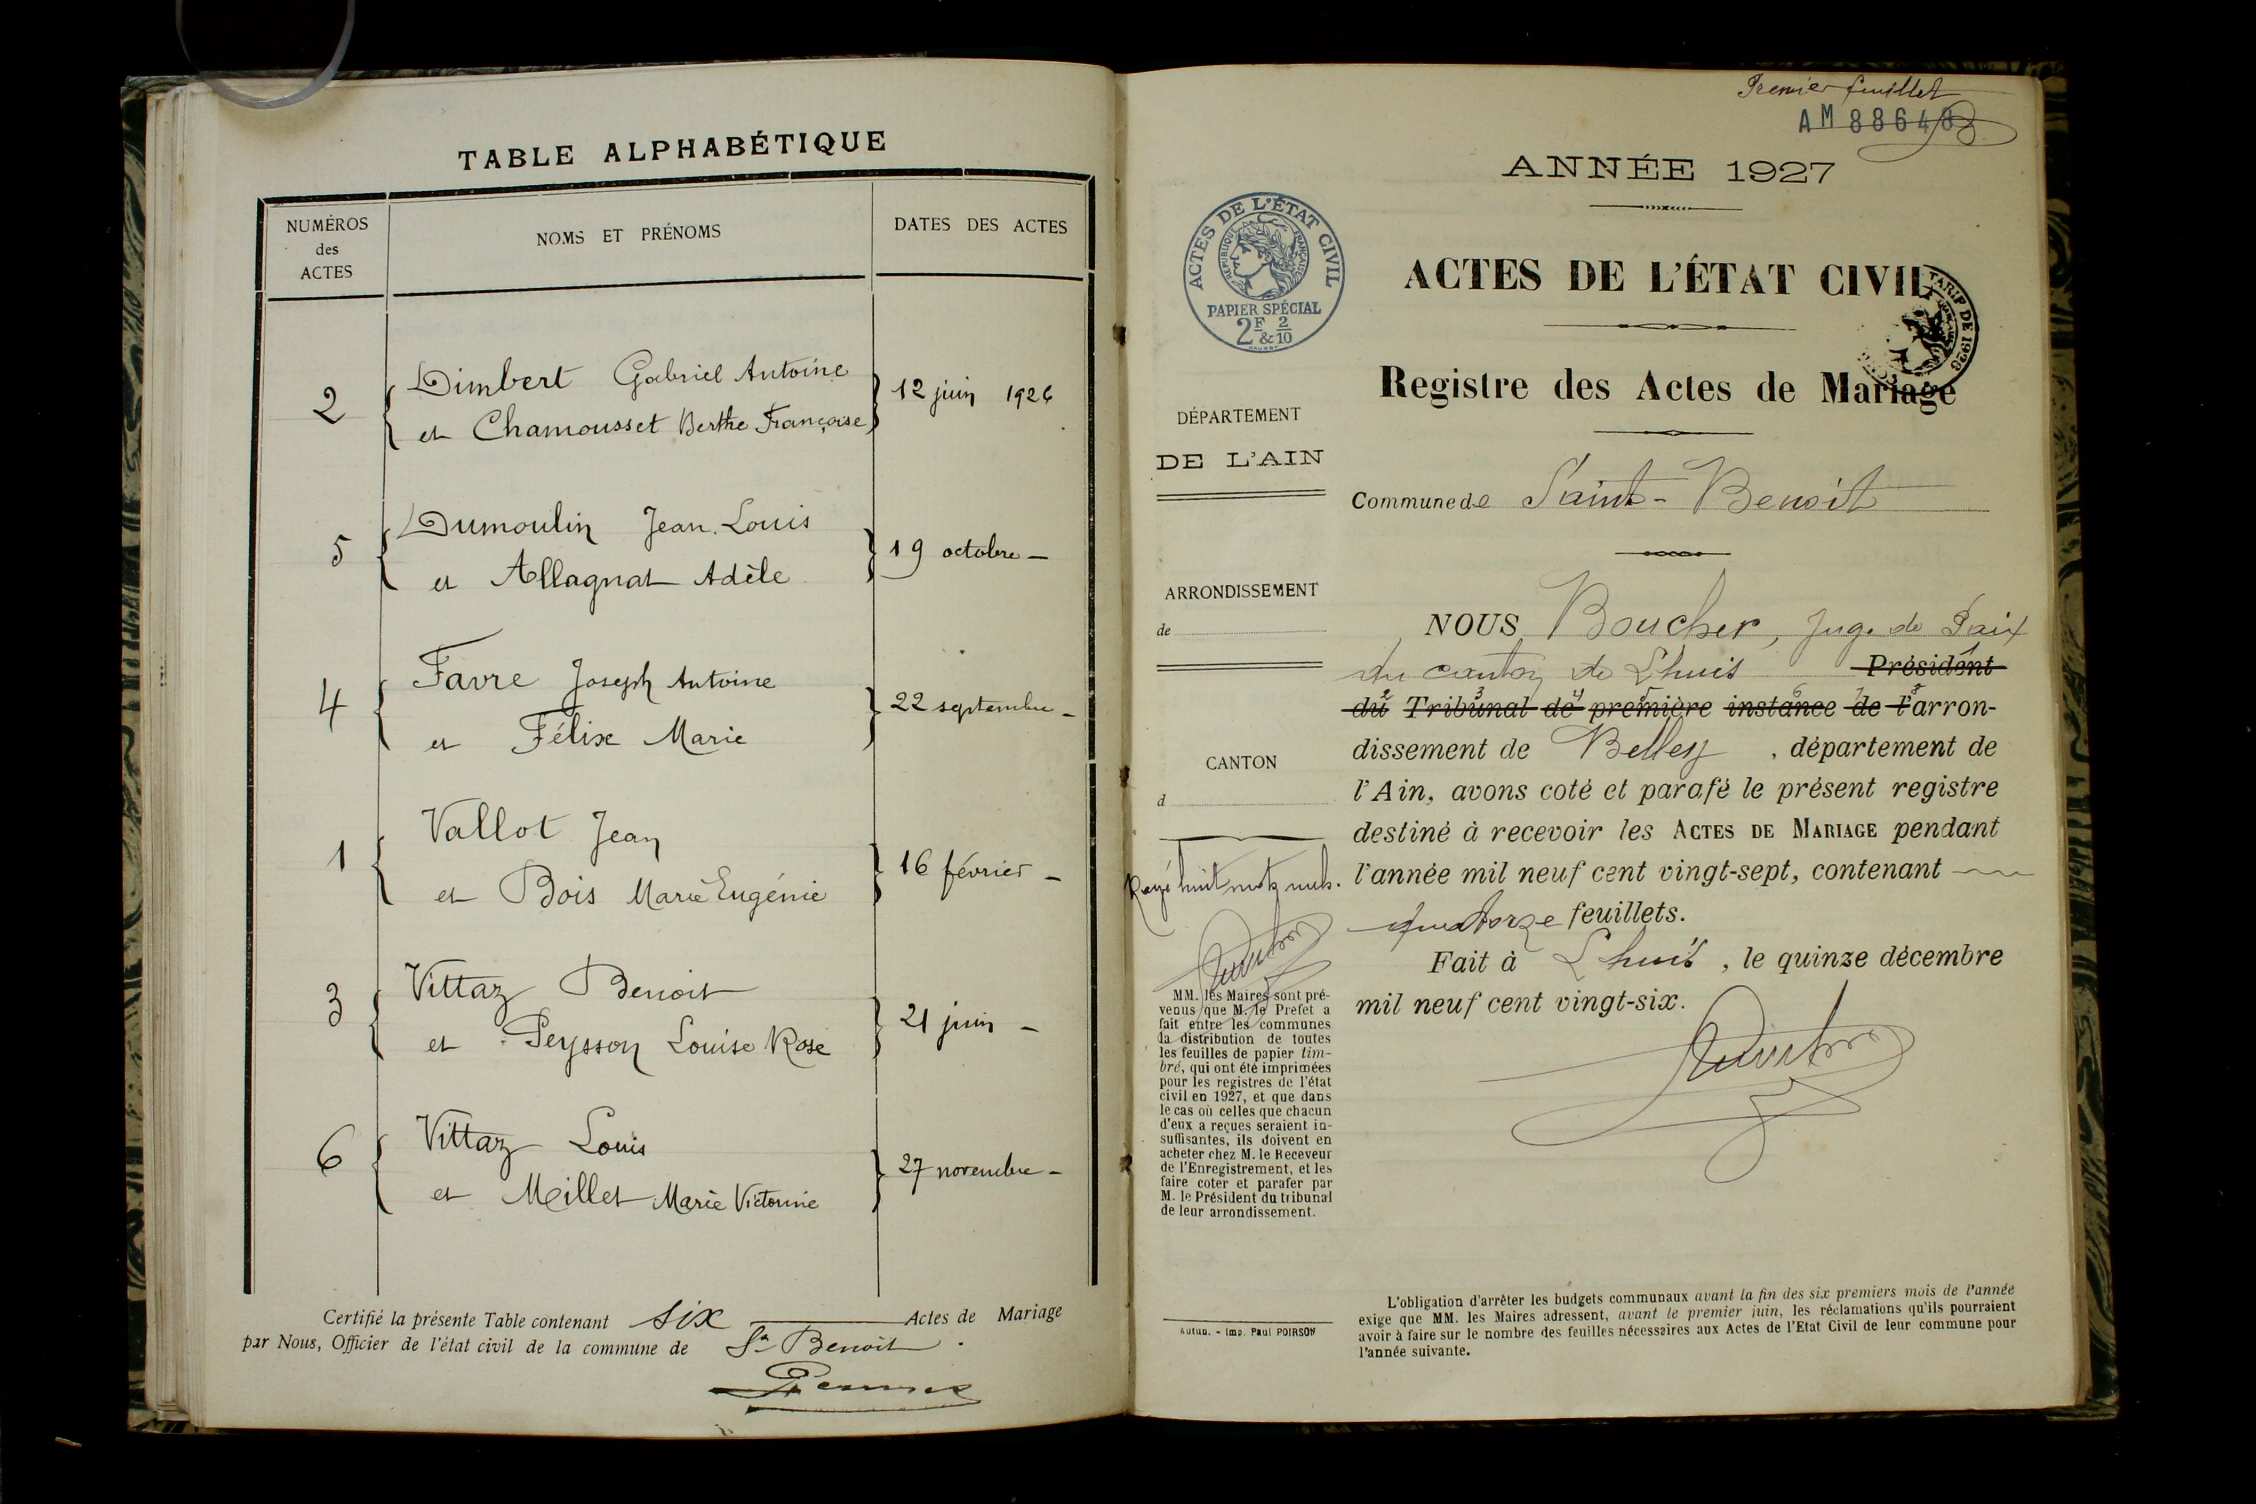 TABLE ALPHABÉTIQUE
NUMÉROS des ACTES
NOMS ET PRÉNOMS
DATES DES ACTES
2 Dimbert Gabriel Antoine
et Chamousset Berthe Françoise
12 juin 1926
5 Dumoulin Jean Louis
et Allagnat Adèle
19 octobre -
4 Favre Joseph Antoine
et Félix Marie
22 septembre -
1 Vallot Jean
et Bois Marie Eugénie
16 février -
3 Vittaz Benoit
et Peysson Louise Rose
21 juin -
6 Vittaz Louis
et Millet Marie Victorine
27 novembre -
Certifié la présente Table contenant six Actes de Mariage
par Nous, Officier de l'état civil de la commune de St Benoit.
Premier feuillet
AM 88648
ANNÉE 1927
ACTES DE L'ÉTAT CIVIL
RÉPUBLIQUE FRANÇAISE
PAPIER SPÉCIAL
2F & 2/10
ACTES DE L'ÉTAT CIVIL
TARIF DE 1926
Registre des Actes de Mariage
DÉPARTEMENT
DE L'AIN
Commune de Saint-Benoît
ARRONDISSEMENT
de
CANTON
d
Rayé huit mots nuls.
NOUS, Boucher, Juge de Paix
du canton de Lhuis Président
du Tribunal de première instance de l'arron-
dissement de Belley, département de
l'Ain, avons coté et parafé le présent registre
destiné à recevoir les ACTES DE MARIAGE pendant
l'année mil neuf cent vingt-sept, contenant
quatorze feuillets.
Fait à Lhuis, le quinze décembre
mil neuf cent vingt-six.
MM. les Maires sont pré-
venus que M. le Prefet a
fait entre les communes
la distribution de toutes
les feuilles de papier tim-
bré, qui ont été imprimées
pour les registres de l'état
civil en 1927, et que dans
le cas où celles que chacun
d'eux a reçues seraient in-
suffisantes, ils doivent en
acheter chez M. le Receveur
de l'Enregistrement, et les
faire coter et parafer par
M. le Président du tribunal
de leur arrondissement.
Autun. - Imp. Paul POIRSON
L'obligation d'arrêter les budgets communaux avant la fin des six premiers mois de l'année
exige que MM. les Maires adressent, avant le premier juin, les réclamations qu'ils pourraient
avoir à faire sur le nombre des feuilles nécessaires aux Actes de l'Etat Civil de leur commune pour
l'année suivante.